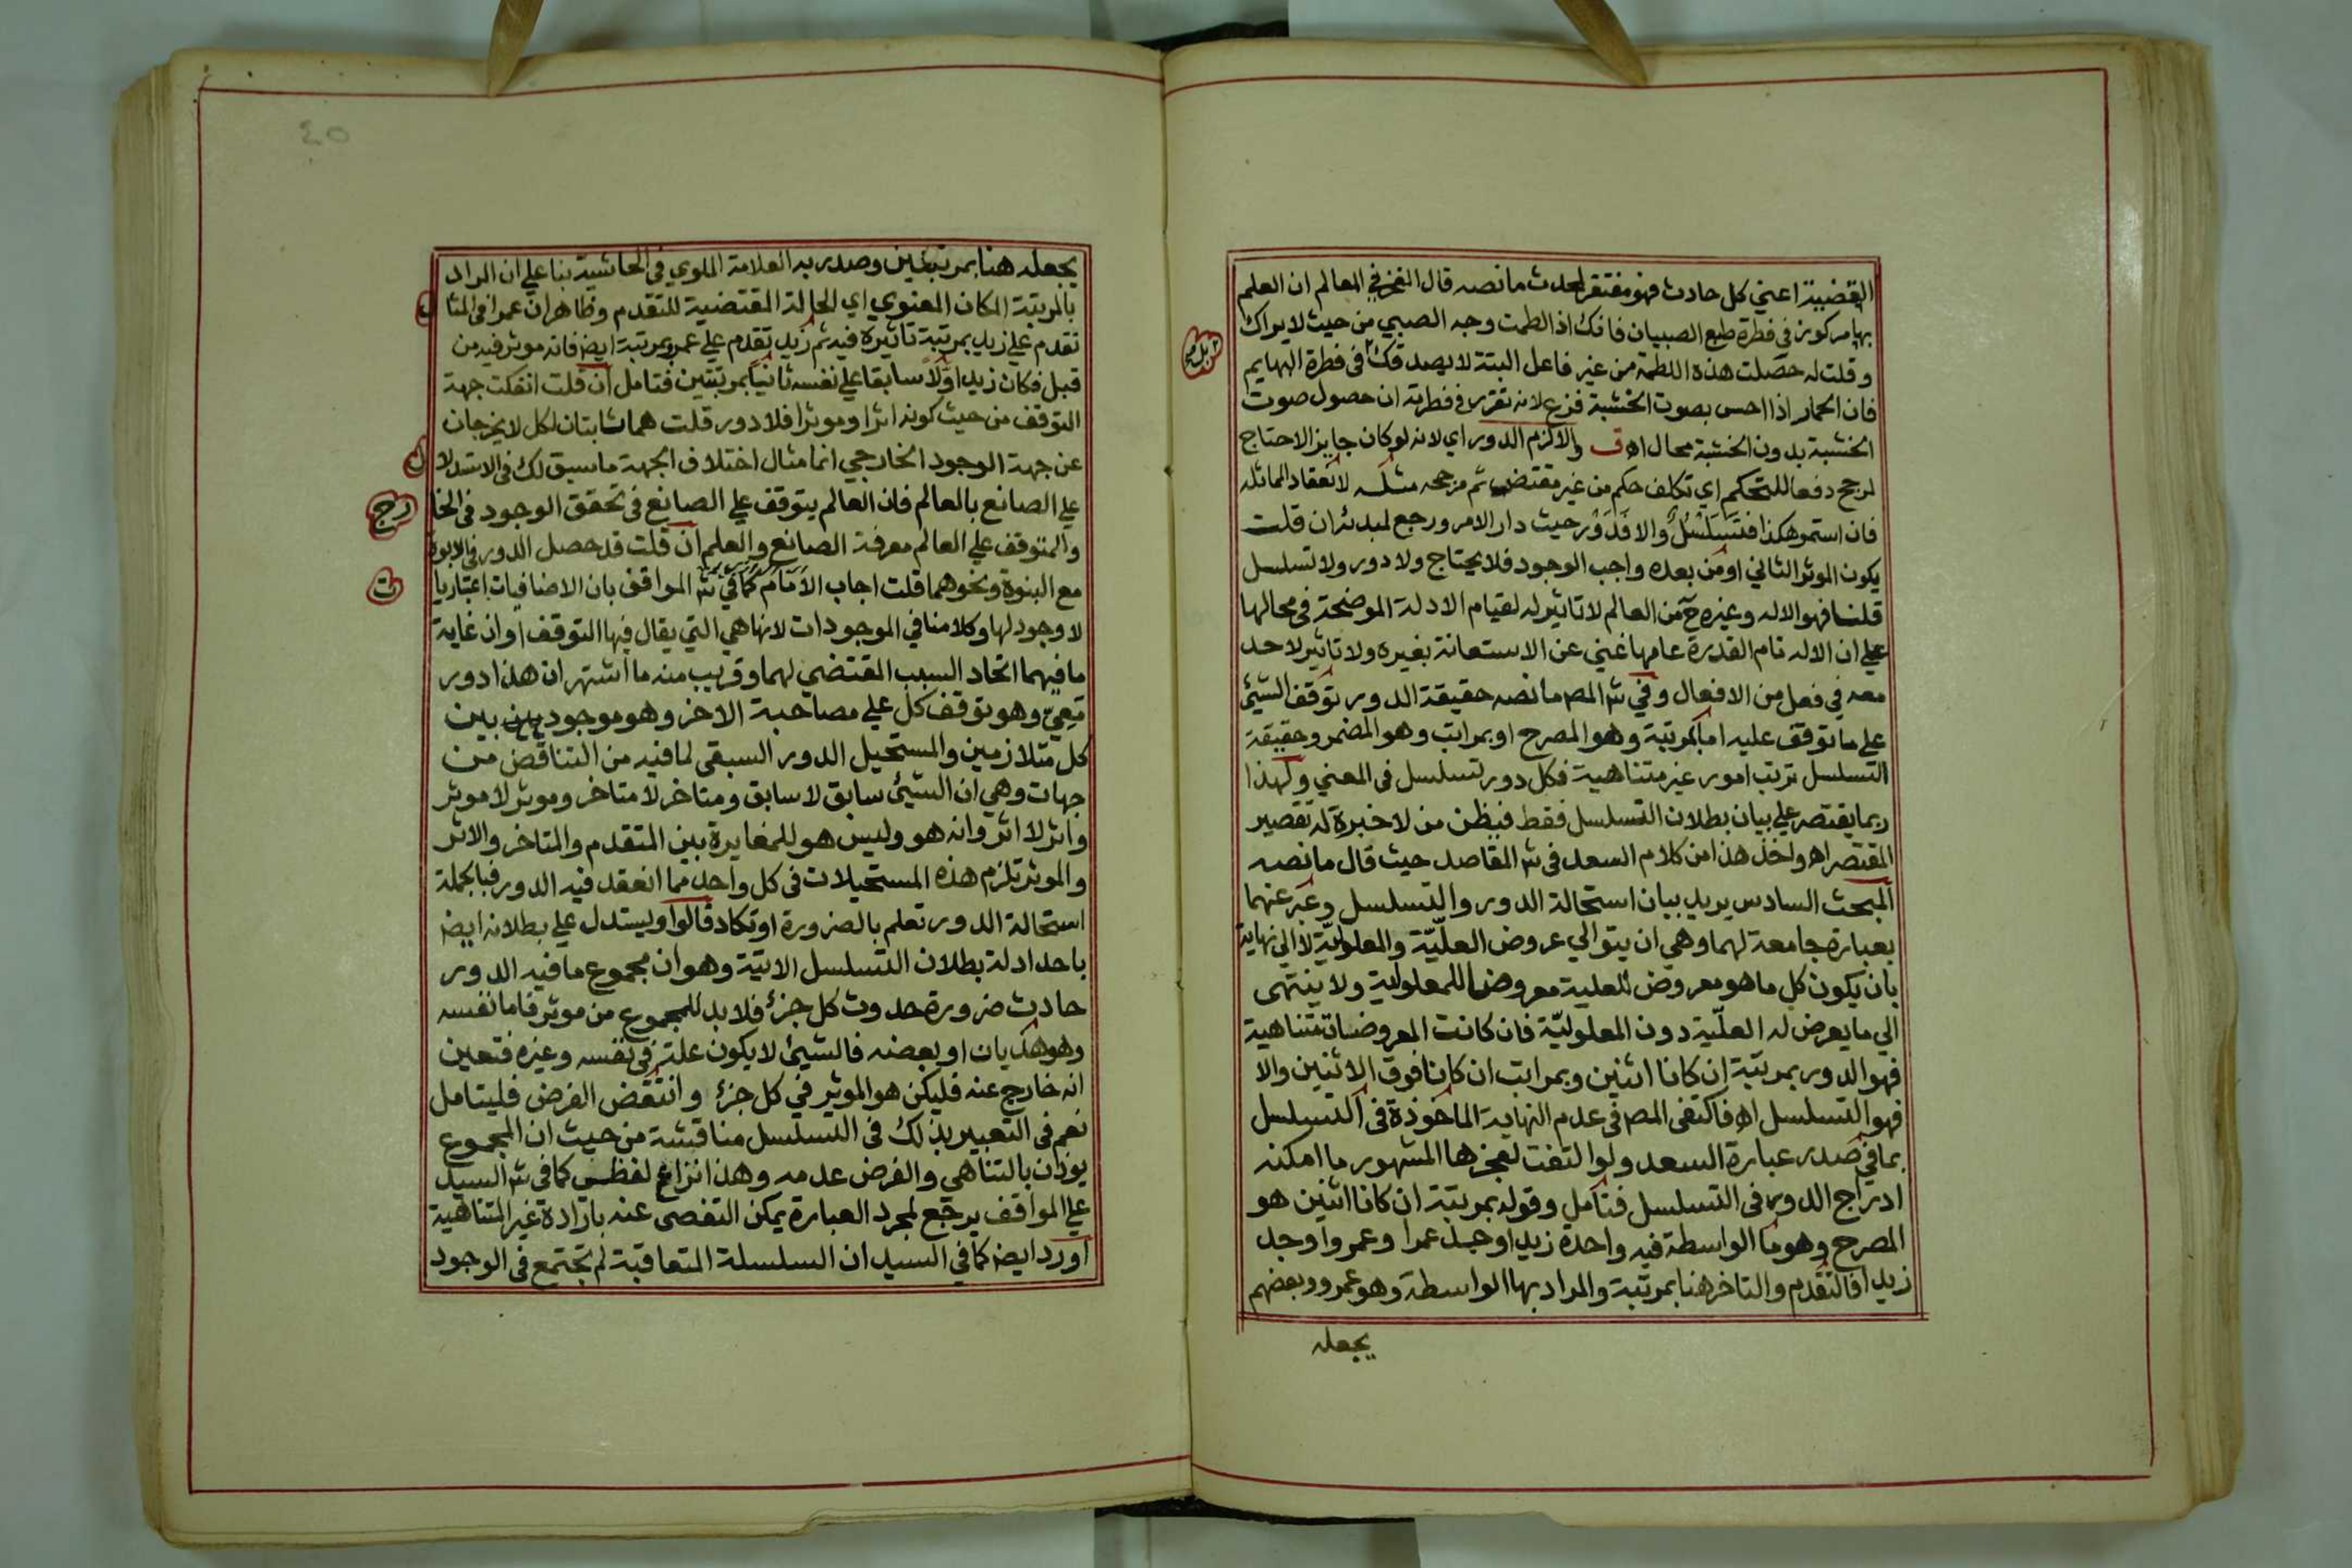 القضية اعني كل حادث فهو مفتقر لمحدث ما نصه قال الفخر في المعالم ان العلم
بها مركوز في فطرة طبع الصبيان فانك اذا لطمت وجه الصبي من حيث لا يراك
وقلت له حصلت هذه اللطمة من غير فاعل البتة لا يصدقك في فطرة البهايم
فان الحمار اذا احس بصوت الخشبة فزع لانه تقرر في فطرته ان حصول صوت
الخشبة بدون الخشبة محال اه ق والا لزم الدور اي لانه لو كان جايز الاحتاج
لمرجح دفعا للتحكم اي تكلف حكم من غير مقتض ثم مرجحه مثله لانعقاد المماثله
فان استمر هكذا فتسلسل والا فدور حيث دار الامر ورجع لمبدئه ان قلت
يكون الموثر الثاني او من بعده واجب الوجود فلا يحتاج ولا دور ولا تسلسل
قلنا فهو الاله وغيره ح من العالم لا تاثير له لقيام الادلة الموضحة في محالها
علي ان الاله تام القدرة عامها غني عن الاستعانة بغيره ولا تاثير لاحد
معه في فعل من الافعال وفي شـ المص ما نصه حقيقة الدور توقف الشيئ
علي ما توقف عليه اما بمرتبة وهو المصرح او بمراتب وهو المضمر وحقيقة
التسلسل ترتب امور غير متناهية فكل دور تسلسل في المعني ولهذا
ربما يقتصر علي بيان بطلان التسلسل فقط فيظن من لا خبرة له تقصير
المقتصر اه واخذ هذا من كلام السعد في شـ المقاصد حيث قال ما نصه
المبحث السادس يريد بيان استحالة الدور والتسلسل وعبر عنهما
بعبارة جامعة لهما وهي ان يتوالي عروض العليّة والمعلوليّة لا الي نهاية
بان يكون كل ما هو معروض للعلية معروضا للمعلولية ولا ينتهي
الي ما يعرض له العلّية دون المعلوليّة فان كانت المعروضات متناهية
فهو الدور بمرتبة ان كانا اثنين وبمراتب ان كانا فوق الاثنين والا
فهو التسلسل اه فاكتفى المص في عدم النهاية الماخوذة في التسلسل
بما في صدر عبارة السعد ولو التفت لعجزها المشهور ما امكنه
ادراج الدور في التسلسل فتامل وقوله بمرتبة ان كانا اثنين هو
المصرح وهو ما الواسطة فيه واحدة زيد اوجد عمرا وعمرو اوجد
زيدا فالتقدم والتاخر هنا بمرتبة والمراد بها الواسطة وهو عمرو وبعضهم
يجعله
٤٥
يجعله هنا بمرتبتين وصدر به العلامة الملوي في الحاشية بنا علي ان المراد
بالمرتبة المكان المعنوي اي الحالة المقتضية للتقدم وظاهر ان عمرا في المثا
ل
تقدم علي زيد بمرتبة تاثيره فيه ثم زيد تقدم علي عمرو بمرتبة ايضا فانه موثر فيه من
قبل فكان زيد اوّلا سابقا علي نفسه ثانيا بمرتبتين فتامل ان قلت انفكت جهة
التوقف من حيث كونه اثرا وموثرا فلا دور قلت هما ثابتان لكل لا يخرجان
عن جهة الوجود الخارجي انما مثال اختلاف الجهة ما سبق لك في الاستدلا
ل
علي الصانع بالعالم فان العالم يتوقف علي الصانع في تحقق الوجود في الخا
رج
والمتوقف علي العالم معرفة الصانع والعلم ان قلت قد حصل الدور في الابوة
مع البنوة ونحوهما قلت اجاب الامام كما في شـ المواقف بان الاضافيات اعتباريا
ت
لا وجود لها وكلامنا في الموجودات لانها هي التي يقال فيها التوقف او ان غاية
ما فيهما اتحاد السبب المقتضي لهما وقريب منه ما اشتهر ان هذا دور
معيّ وهو توقف كل علي مصاحبة الاخر وهو موجود بين بين
كل متلازمين والمستحيل الدور السبقي لما فيه من التناقض من
جهات وهي ان الشيئ سابق لا سابق ومتاخر لا متاخر وموثر لا موثر
واثر لا اثر وانه هو وليس هو للمغايرة بين المتقدم والمتاخر والاثر
والموثر تلزم هذه المستحيلات في كل واحد مما انعقد فيه الدور فبالجملة
استحالة الدور تعلم بالضرورة او تكاد قالوا ويستدل علي بطلانه ايضا
باحد ادلة بطلان التسلسل الاتية وهو ان مجموع ما فيه الدور
حادث ضرورة حدوث كل جزئ فلا بد للمجموع من موثر فاما نفسه
وهو هذيان او بعضه فالشيئ لا يكون علة في نفسه وغيره فتعين
انه خارج عنه فليكن هو الموثر في كل جزئ وانتقض الفرض فليتامل
نعم في التعبير بذلك في التسلسل مناقشة من حيث ان المجموع
يوذن بالتناهي والفرض عدمه وهذا نزاع لفظي كما في شـ السيد
علي المواقف يرجع لمجرد العبارة يمكن التفصي عنه بارادة غير المتناهية
اورد ايضا كما في السيد ان السلسلة المتعاقبة لم تجتمع في الوجود